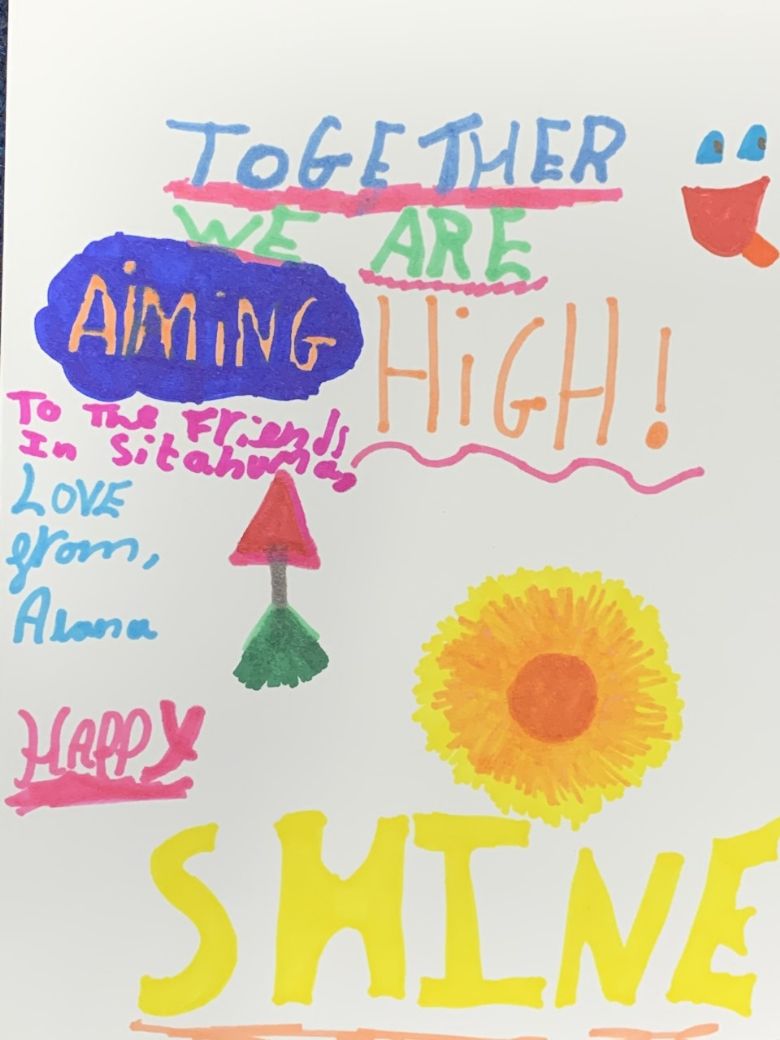 TOGETHER
WE ARE
AiMiNG
HiGH!
To The Friends
In Sitahuma,
LOVE
from,
Alana
HAPPY
SHINE